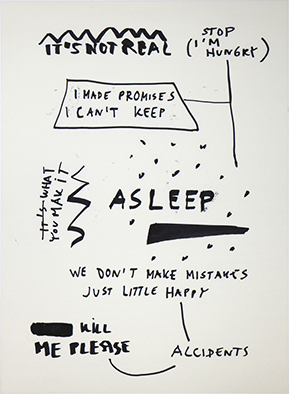 IT'S NOT REAL
STOP
(I'M
HUNGRY)
I MADE PROMISES
I CAN'T KEEP
IT'S WHAT
YOU MAKE IT
ASLEEP
WE DON'T MAKE MISTAKES
JUST LITTLE HAPPY
KILL
ME PLEASE
ACCIDENTS